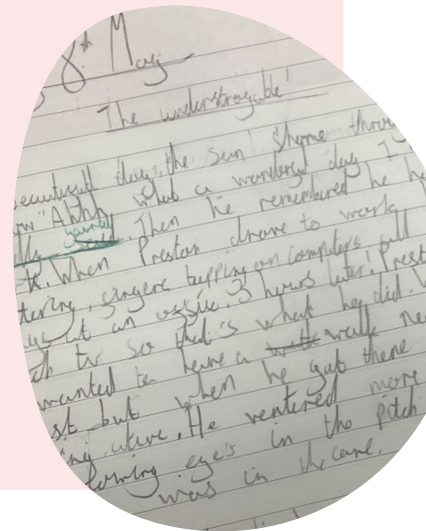 8th May
The understroyable!
beautifull day, the sun shone throu
"Ahhh what a wonderful day I
yawned. Then he remembered he h
k. When Preston drove to work
tering, fingers tapping on computers all
at an office. 3 hours later! Prest
ch tv so that's what he did. W
wanted to have a walk ne
st but when he got there
ing alive. He ventered more
lowing eye's in the pitch
was in the cave.